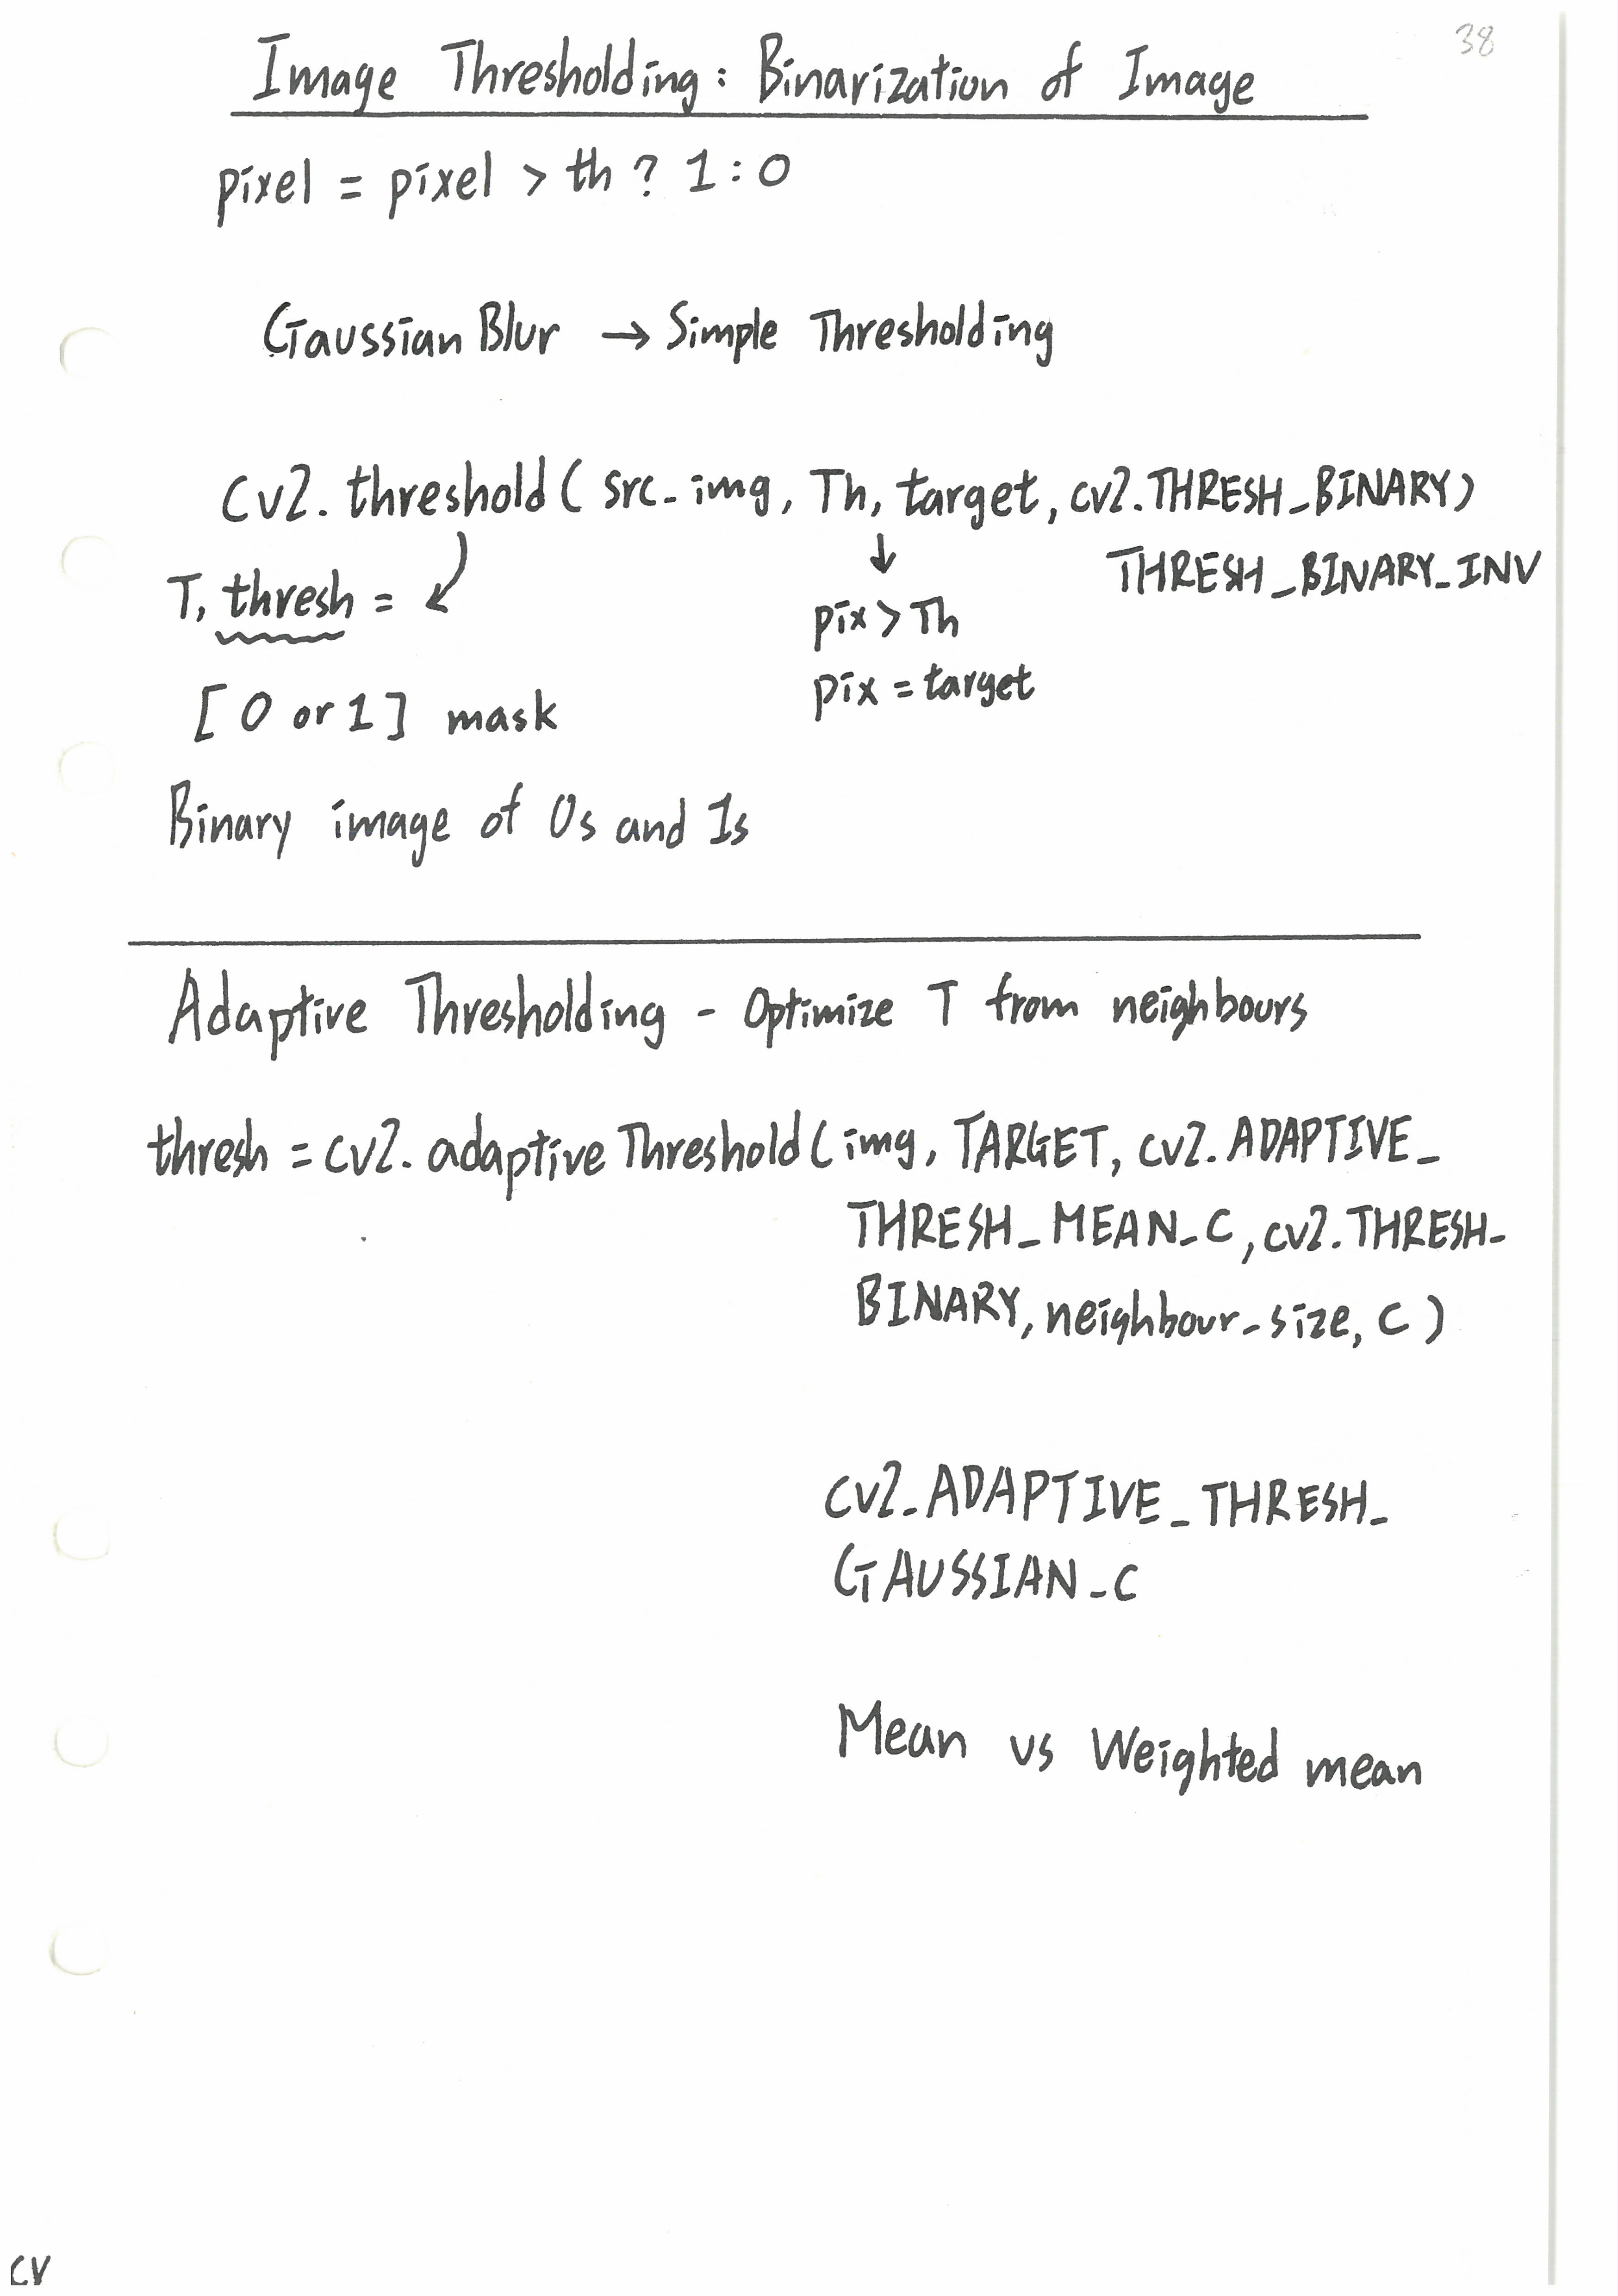 38
Image Thresholding: Binarization of Image
pixel = pixel > th ? 1 : 0
Gaussian Blur → Simple Thresholding
cv2. threshold( src_img, Th, target, cv2.THRESH_BINARY)
THRESH_BINARY_INV
T, thresh =
pix > Th
pix = target
[ 0 or 1 ] mask
Binary image of 0s and 1s
Adaptive Thresholding - Optimize T from neighbours
thresh = cv2. adaptive Threshold( img, TARGET, cv2. ADAPTIVE_
THRESH_MEAN_C, cv2.THRESH_
BINARY, neighbour_size, C )
cv2_ADAPTIVE_THRESH_
GAUSSIAN_C
Mean vs Weighted mean
CV